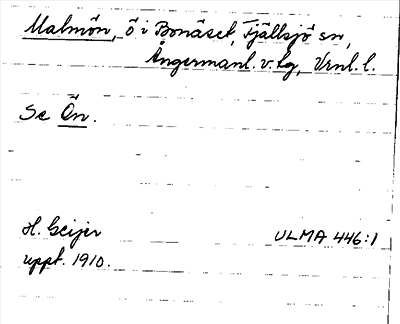 Malmön, ö i Bonäset, Fjällsjö sn,
Ångermanl. v. lg, Vrnl. l.
Se Ön.
H. Geijer
uppt. 1910.
ULMA 446:1